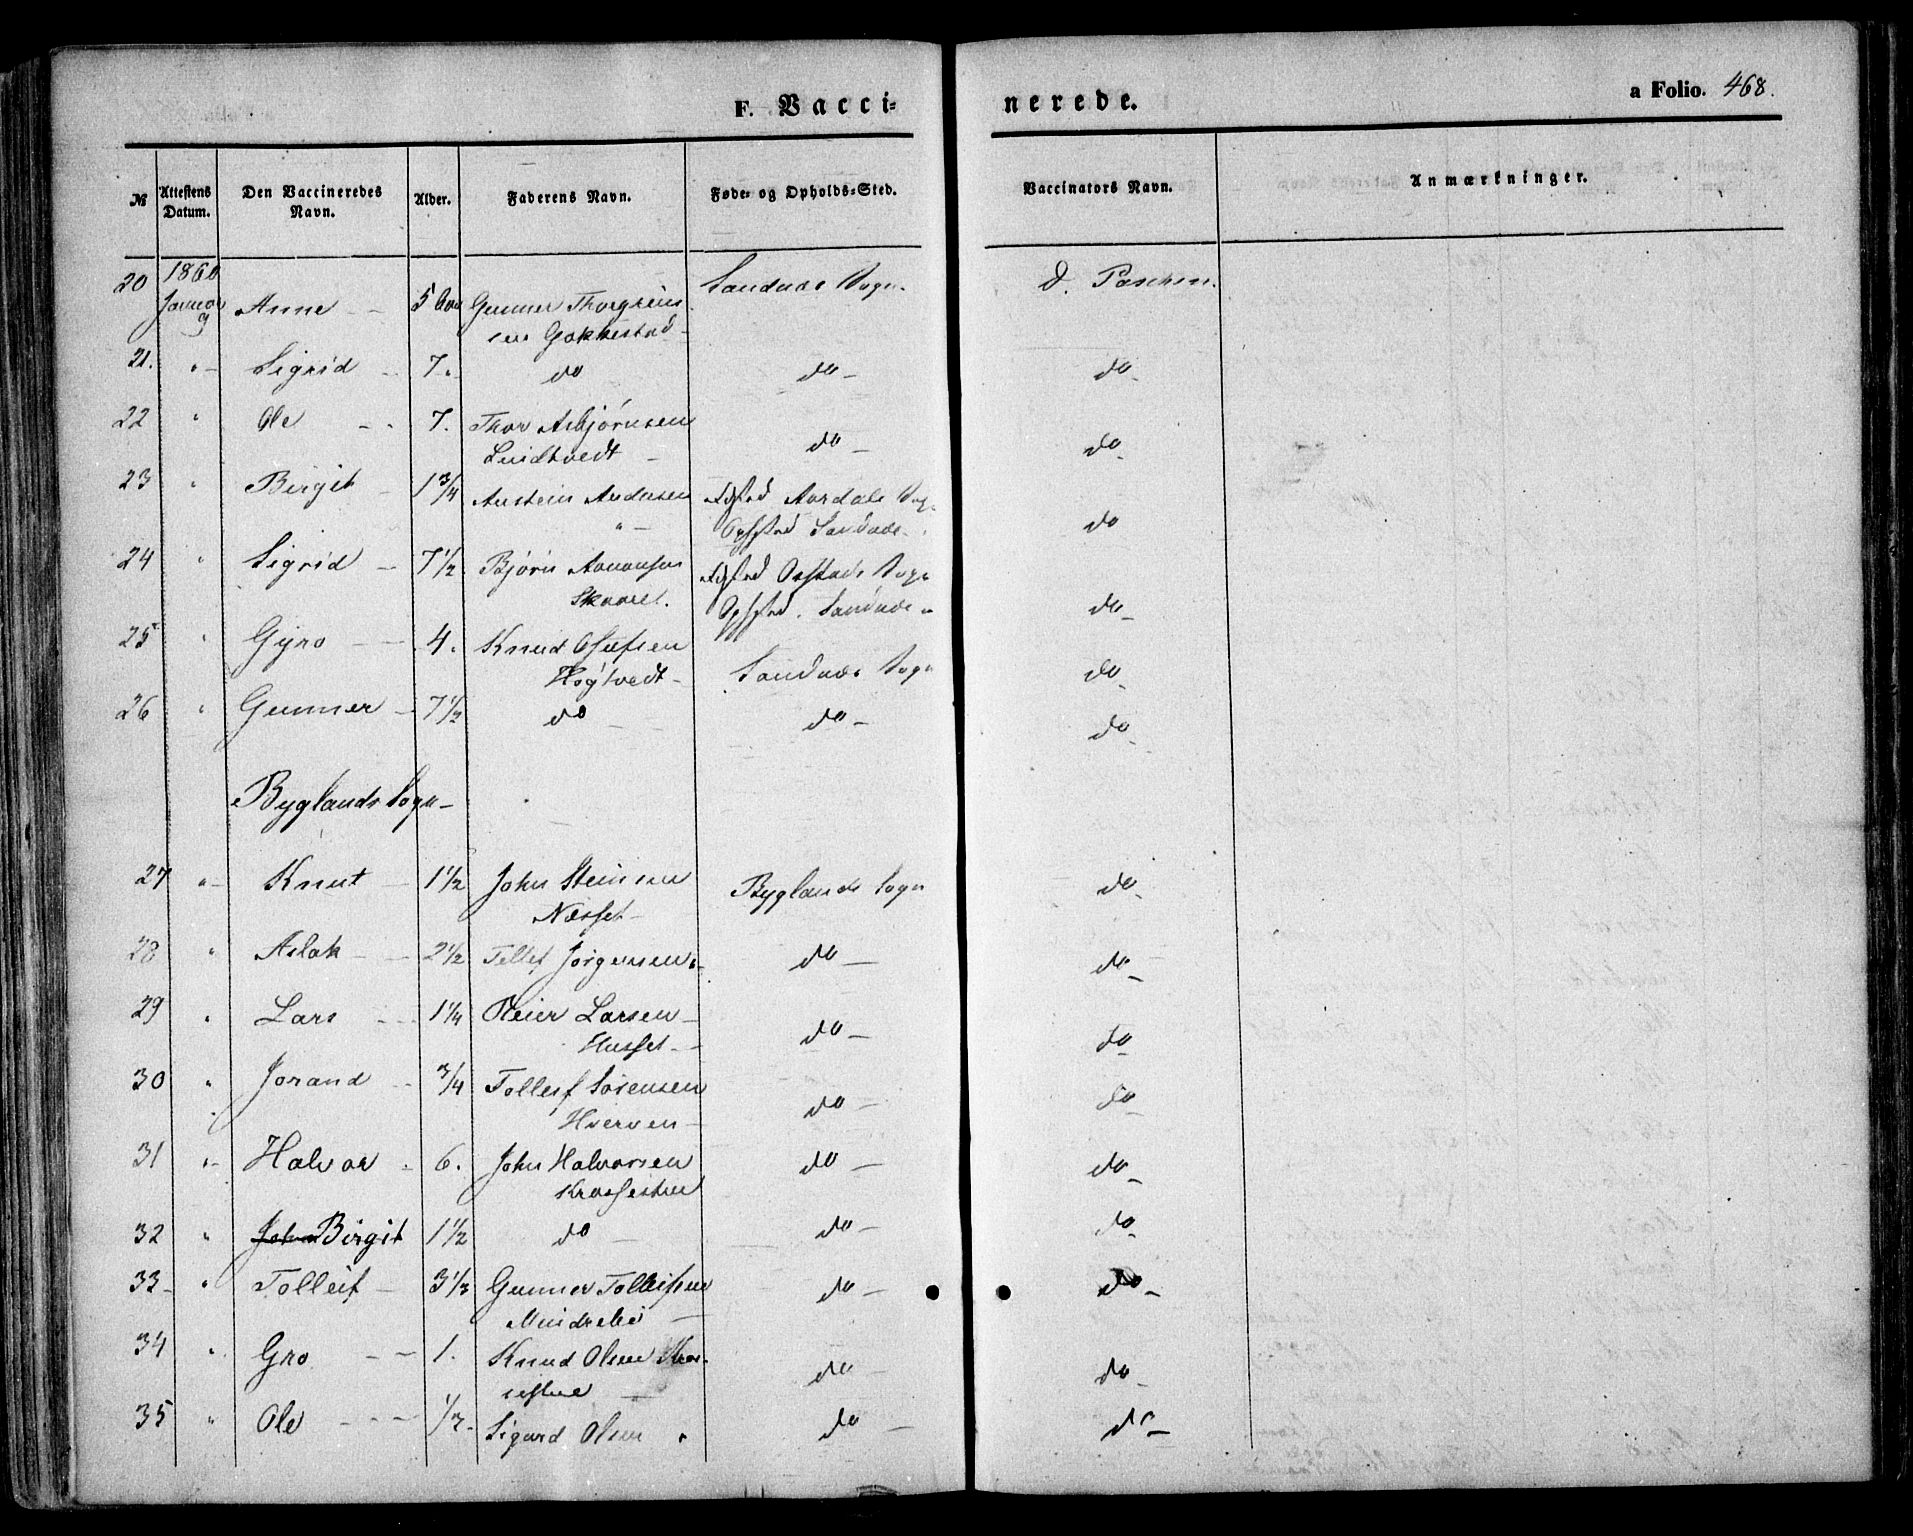 F. Vacci-
nerede.
a Folio. 468.
№ Attestens Datum. Den Vaccineredes Navn. Alder. Faderens Navn. Føde- og Opholds-Sted. Vaccinators Navn. Anmærkninger.
1860
20 Januar 9 Anne - - 5 Gunner Thorgrims Sandnes Sogn. D. Paschen.
sen Gakkestad -
21. " - Sigrid - 7. do do - do -
22 " Ole - - 7. Thor Asbjørnsen do - do -
Lindtvedt -
23 " Birgit - 1 3/4 Austein Andersen Fdsted Aardals Sog. do
" - Ophsted Sandnæs.
24 " Sigrid - 7 1/2 Bjørn Aanonsen Fdsted Sogn do -
Skaaret. Ophsted. Sandnæs
25 " Gyro - - 4. Knud Olufsen Sandnæs Sogn do -
Høgtvedt -
26 " Gunner - 7 1/2 do - do - do -
Byglands Sogn -
27 " - Knut - 1 1/2 John Steinsen Byglands Sogn do -
Næsset -
28 " Aslak - - 2 1/2 Tellef Jørgensen. do - do -
29 " Lars - - 1 1/4 Reier Larsen - do - do -
Husset -
30 " Jorand - - 3/4 Tolleif Sørensen do - do -
Hverven -
31 " - Halvor - 6. John Halvorsen do - do -
32 " Birgit 1 1/2 do - do - do -
33 - " Tolleif - 3 1/2 Gunner Tolleifsen do - do -
34 " Gro - - 1. Knud Olsen do - do -
35 " Ole - - - 1/2 - Sigurd Olsen " do - do -